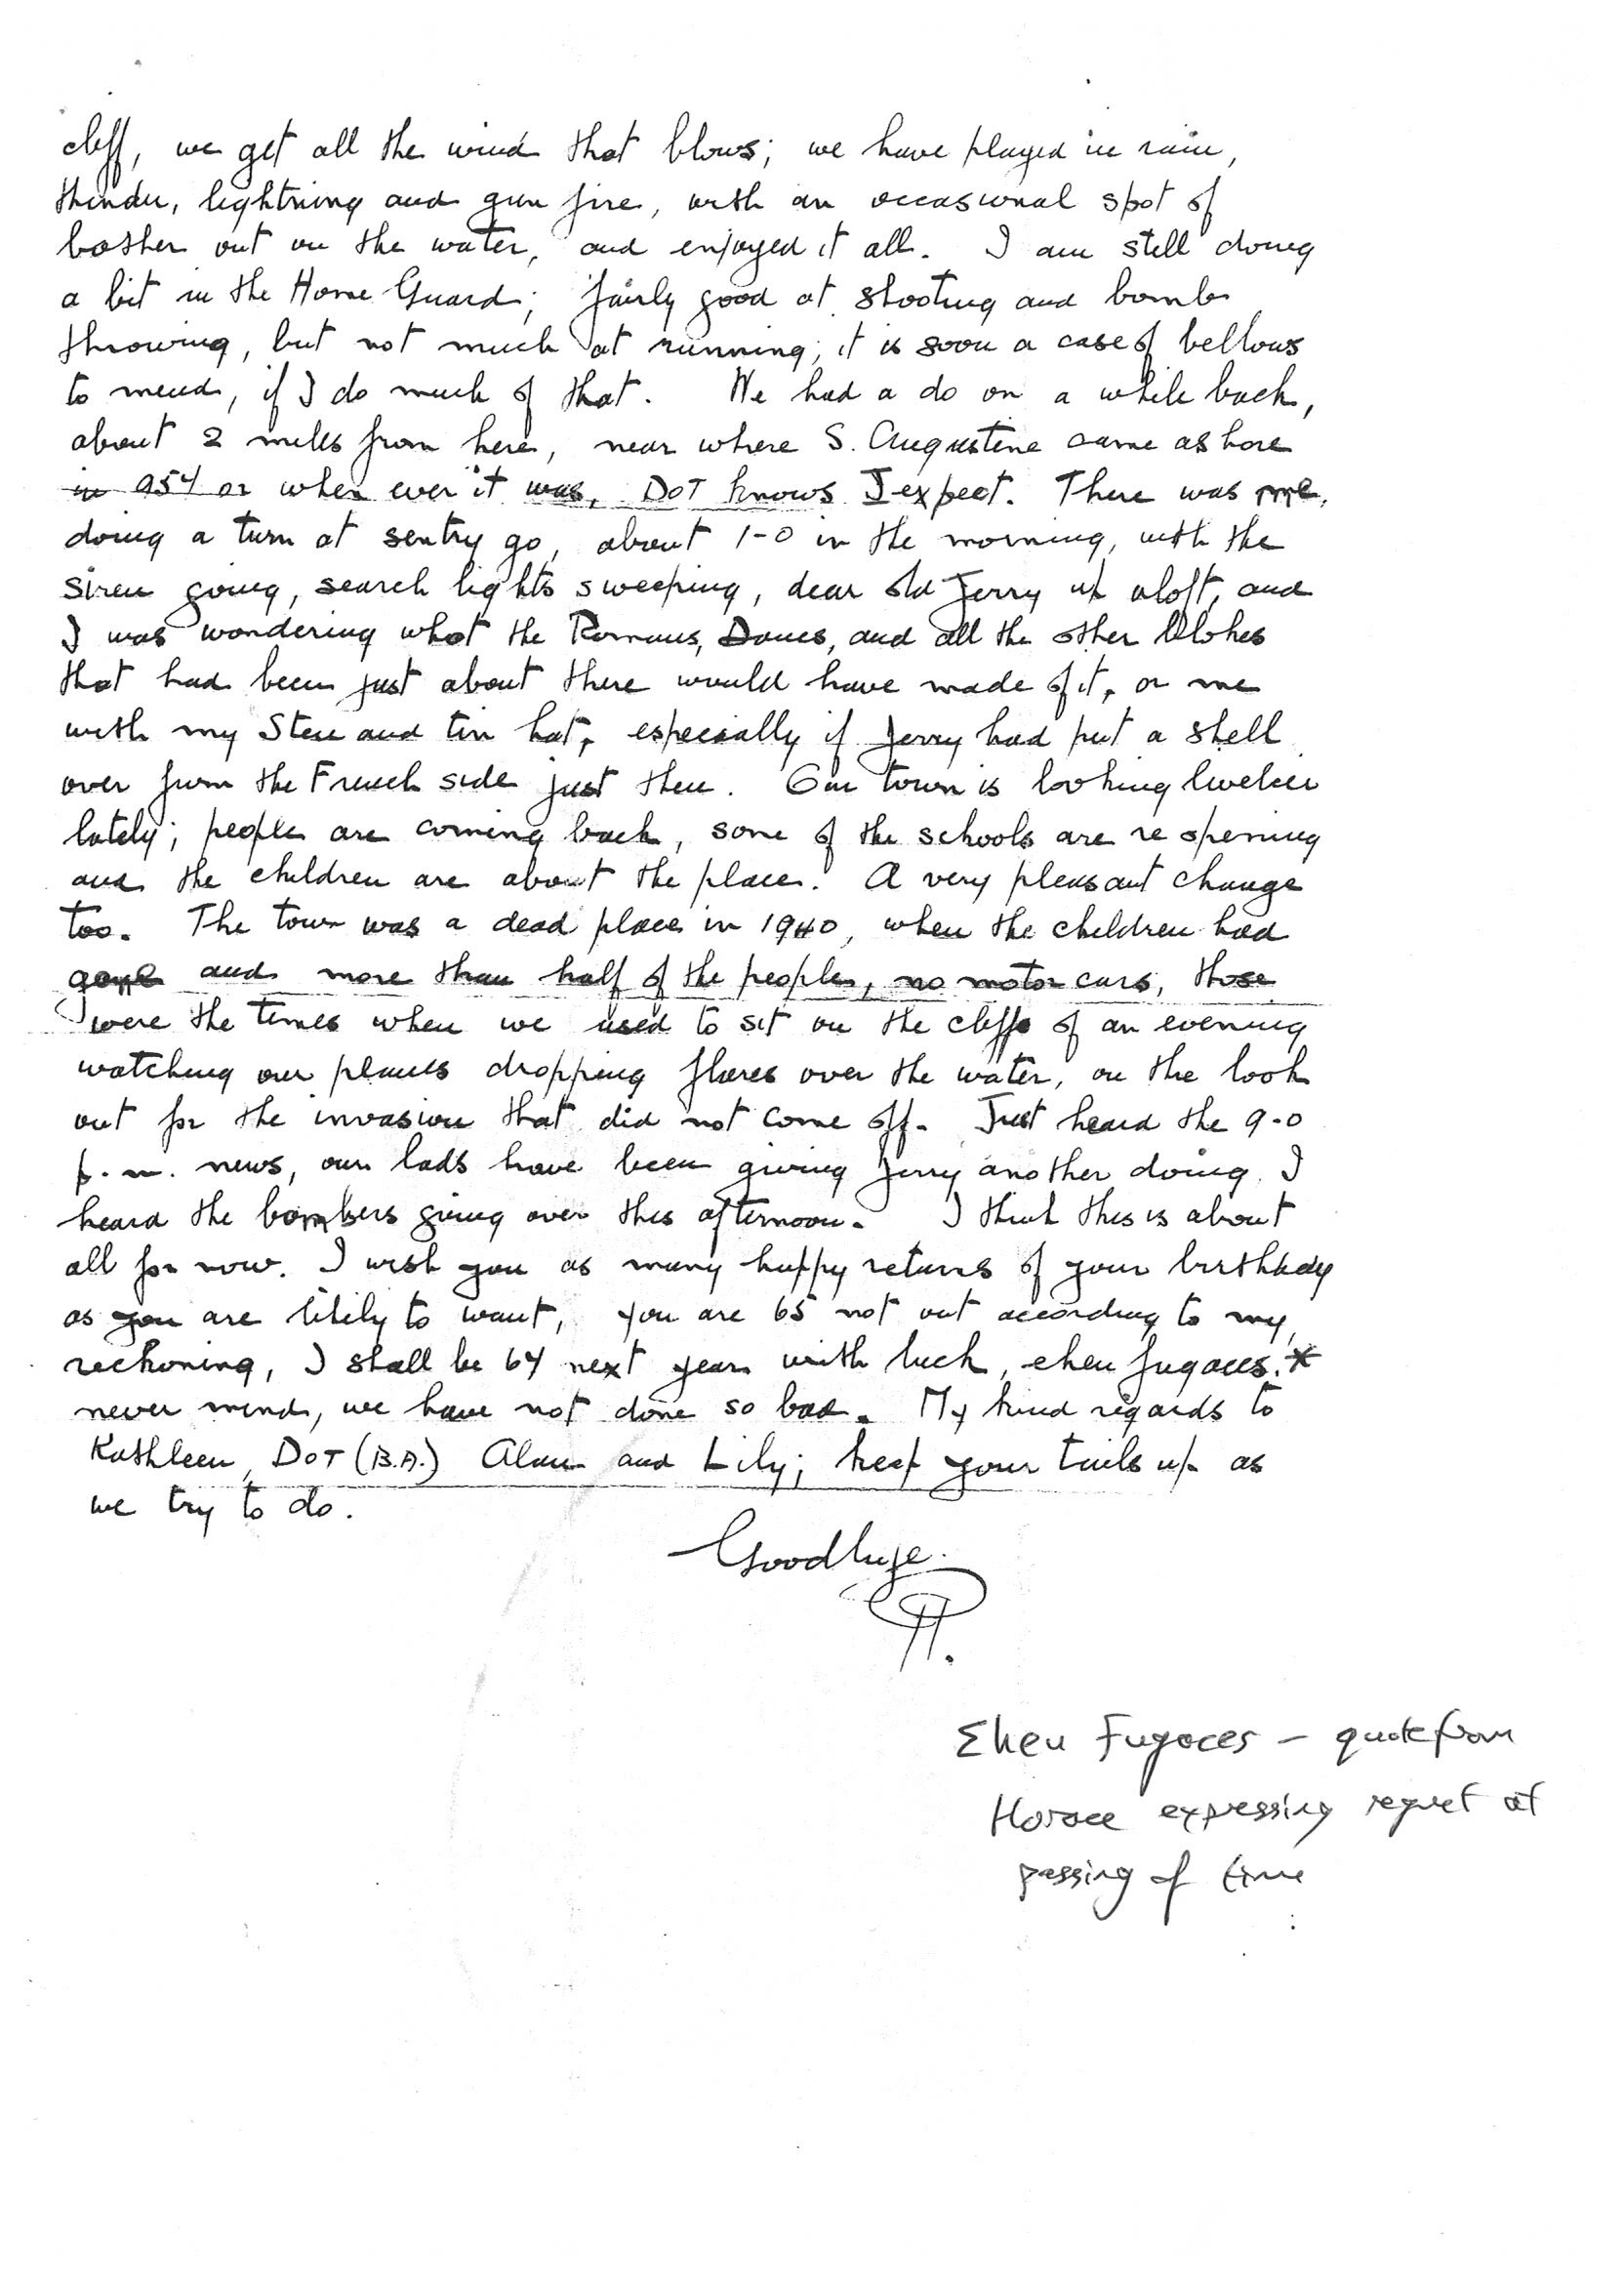 cliff, we get all the wind that blows; we have played in rain,
thunder, lightning and gun fire, with an occasional spot of
bother out on the water, and enjoyed it all. I am still doing
a bit in the Home Guard; fairly good at shooting and bomb
throwing, but not much at running; it is soon a case of bellows
to mend, if I do much of that. We had a do on a while back,
about 2 miles from here, near where S. Augustine came ashore
in 954 or when ever it was, DOT knows I expect. There was me,
doing a turn at sentry go, about 1-0 in the morning, with the
siren going, search lights sweeping, dear old Jerry up aloft, and
I was wondering what the Romans, Danes, and all the other blokes
that had been just about there would have made of it, or me
with my Sten and tin hat, especially if Jerry had put a shell
over from the French side just then. Our town is looking livelier
lately; people are coming back, some of the schools are re opening
and the children are about the place. A very pleasant change
too. The town was a dead place in 1940, when the children had
gone and more than half of the people, no motor cars, those
were the times when we used to sit on the cliffs of an evening
watching our planes dropping flares over the water, on the look
out for the invasion that did not come off. Just heard the 9-0
p.m. news, our lads have been giving Jerry another doing. I
heard the bombers going over this afternoon. I think this is about
all for now. I wish you as many happy returns of your birthday
as you are likely to want, you are 65 not out according to my
reckoning, I shall be 64 next year with luck, eheu fugaces. *
never mind, we have not done so bad. My kind regards to
Kathleen, DOT (B.A.) Alan and Lily; keep your tails up as
we try to do.
Goodbye.
Eheu Fugaces - quote from
Horace expressing regret at
passing of time